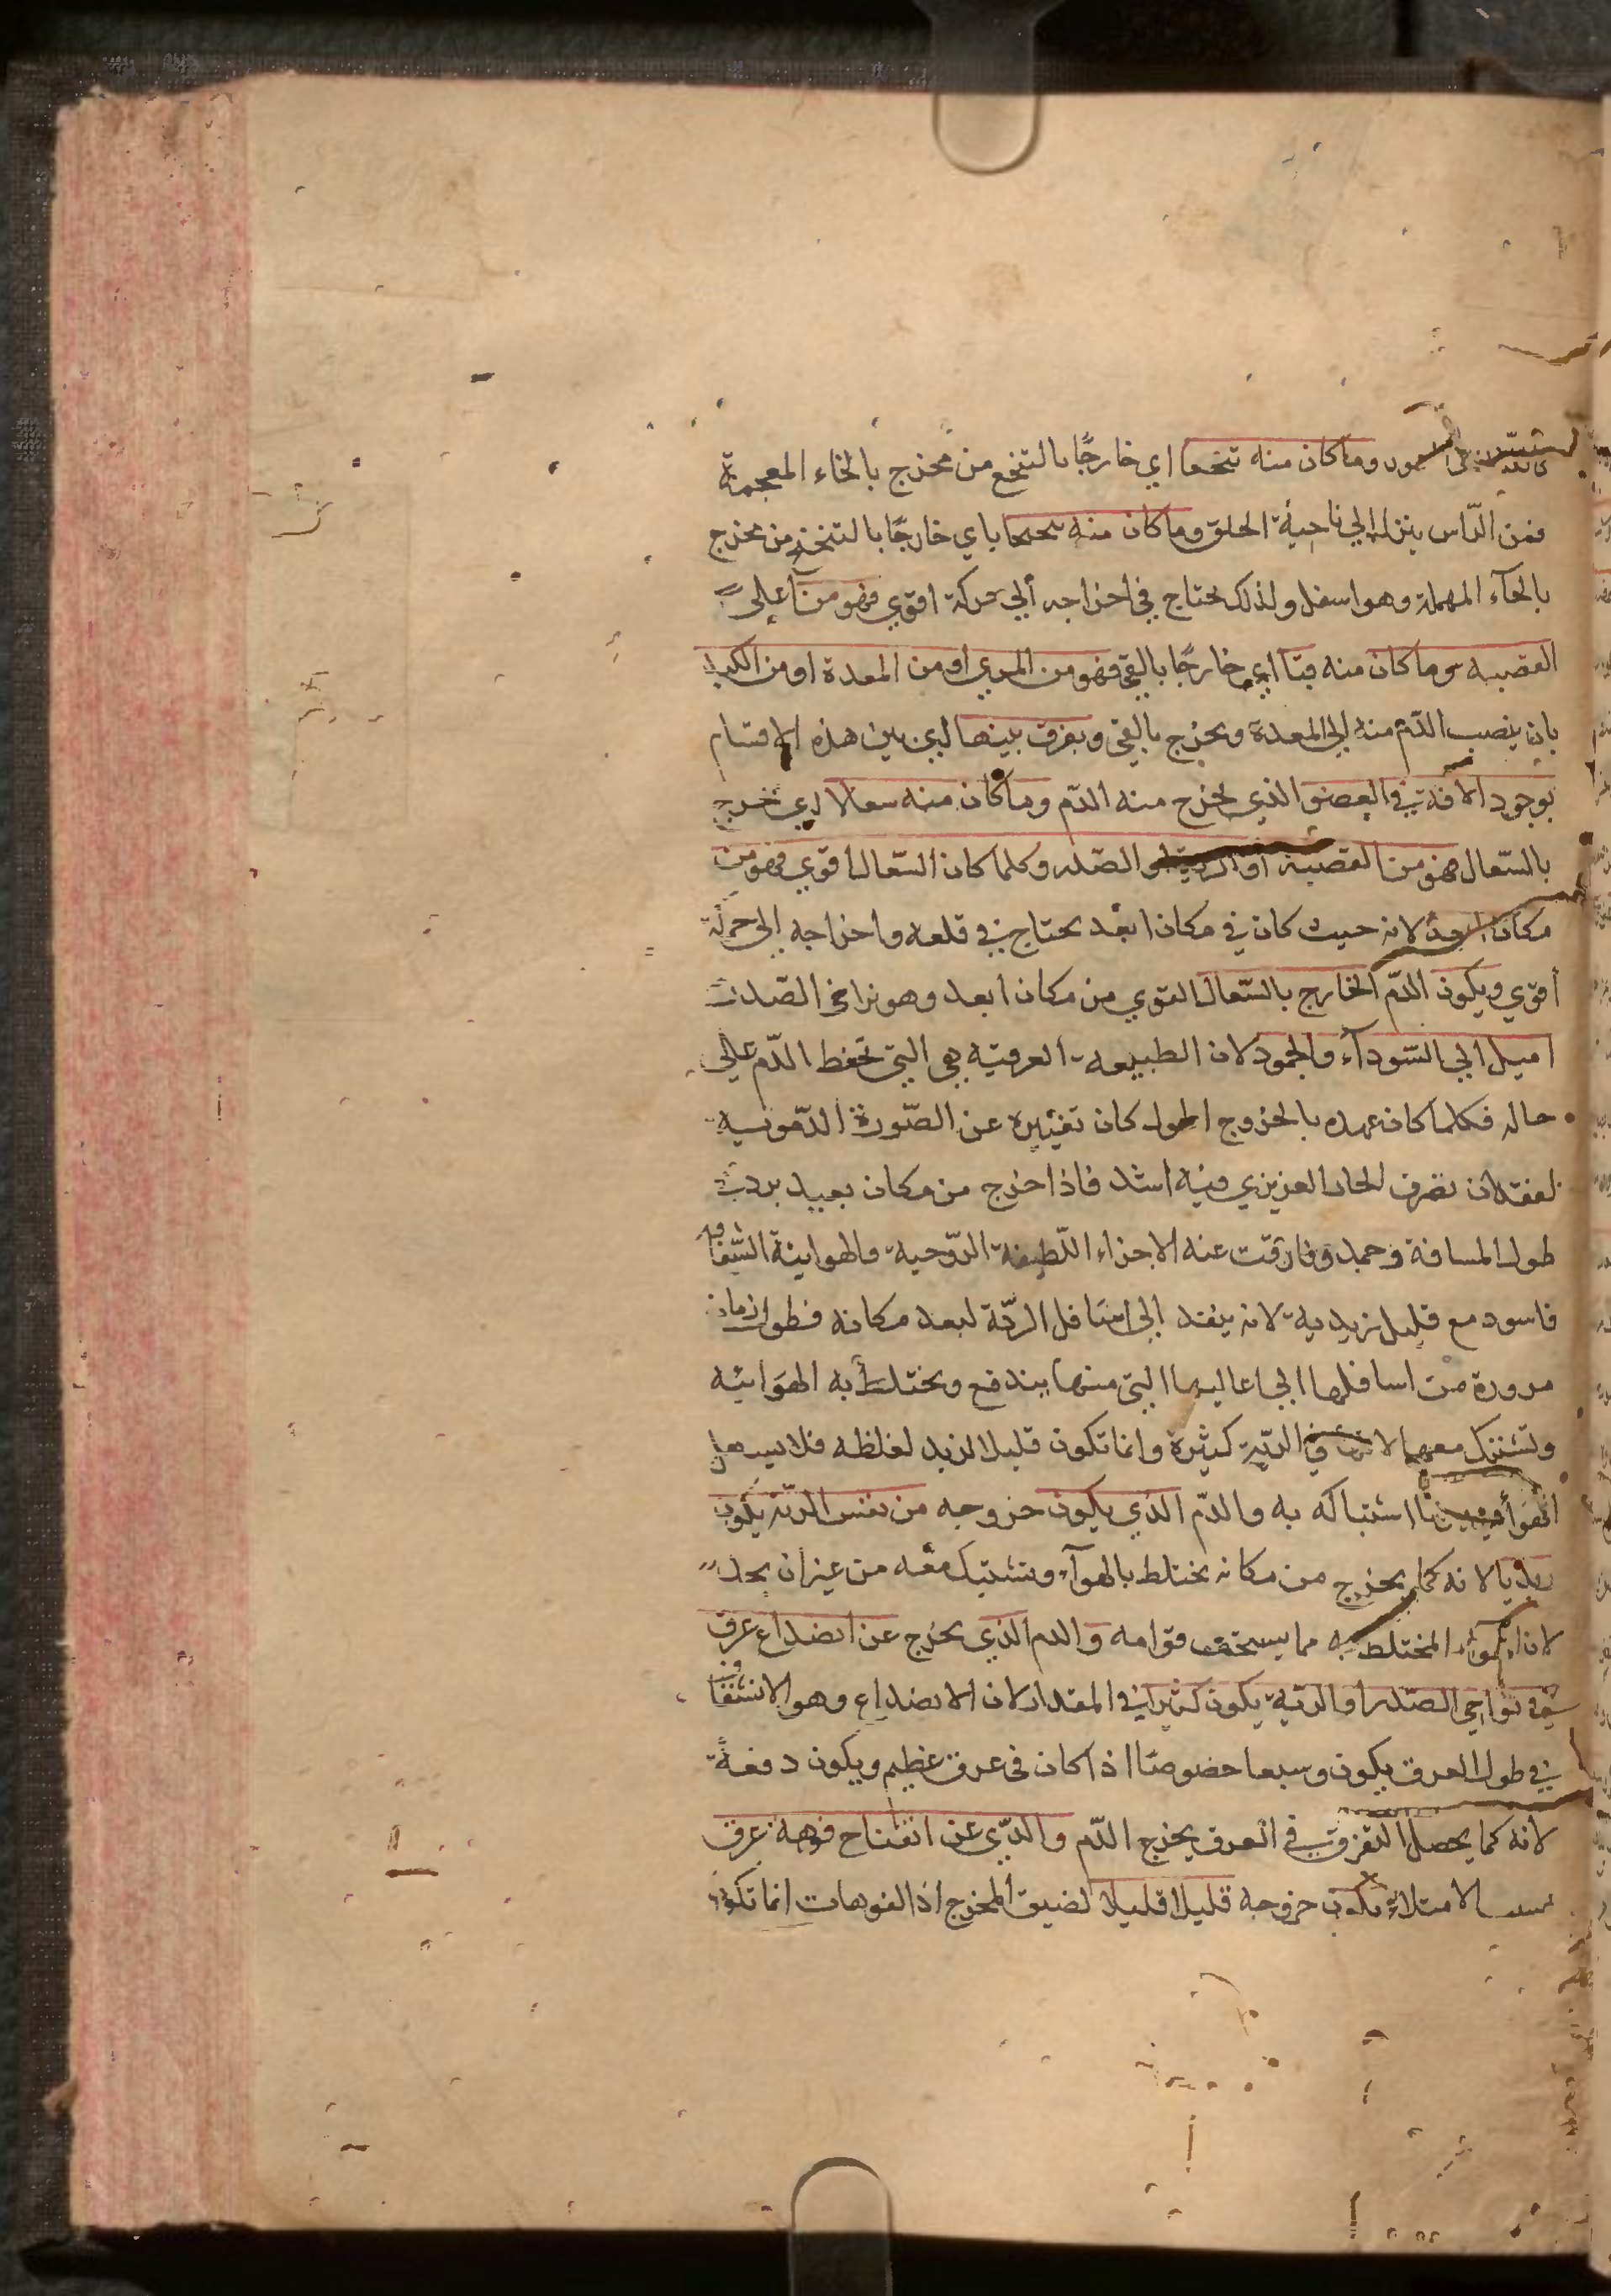 وما كان منه تنخعا اي خارجًا بالتنخع من مخرج بالخاء المعجمة
فمن الرّاس ينزل الي ناحية الحلق وما كان منه تنحنحا اي خارجًا بالتنحنح من مخرج
بالحآء المهملة وهو اسفل ولذلك يحتاج في اخراجه ألي حركة اقوي فهو من آعلي
القصبه وما كان منه قيّا اي خارجًا بالقي فهو من المري او من المعدة او من الكبد
بان ينصب الدّم منه الي المعدة ويخرج بالقي ويفرق بينها اي بين هذه الاقسام
بوجود الافة في العضو الذي يخرج منه الدّم وما كان منه سعالا اي خرج
بالسّعال فهو من القصبة او الرية او الصّدر وكلما كان السّعال اقوي فهو من
مكان ابعد لانه حيث كان في مكان ابعد يحتاج في قلعه واخراجه الي حركة
أقوي ويكون الدّم الخارج بالسّعال القوي من مكان ابعد وهو نواحي الصّدر
اميل الي السّودآء والجمود لان الطبيعه العرقيّه هي التي تحفظ الدّم علي
حاله فكلما كان عهده بالخروج اطول كان تغيّيره عن الصّورة الدّمويه
لفقدان تصرف الحار الغريزي فيه اشد فاذا خرج من مكان بعيد برد في
طول المسافة وجمد وفارقت عنه الاجزاء اللّطيفة الرّوحية والهوايية الشّفافه
فاسود مع قليل زبدية لانه ينفد الي اسافل الريّة لبعد مكانه فطول زمان
مروره من اسافلها الي اعاليها التي منها يندفع ويختلط به الهوائيه
وتشتبك معها لانها في الريّة كثيرة وانما تكون قليل الزبد لغلظه فلا يسهل
اشتباكه به والدّم الذي يكون خروجه من نفس الريّة يكون
زبديا لانه كما يخرج من مكانه يختلط بالهوآء ويشتبك معه من غير ان يجد
لان الهوآء المختلط به مما يسخف قوامه والدم الذي يخرج عن انصداع عرق
في نواحي الصّدر او الريّة يكون كثيرا في المقدار لان الانصداع وهو الانشقاق
في طول العرق يكون وسيعا خصوصًا اذا كان في عرق عظيم ويكون دفعةً
لانه كما يحصل التفرق في العرق يخرج الدّم والذّي عن انفتاح فوهة عرق
الامتلاء يكون خروجه قليلا قليلا لضيق المخرج اذ الفوهات انما تكون